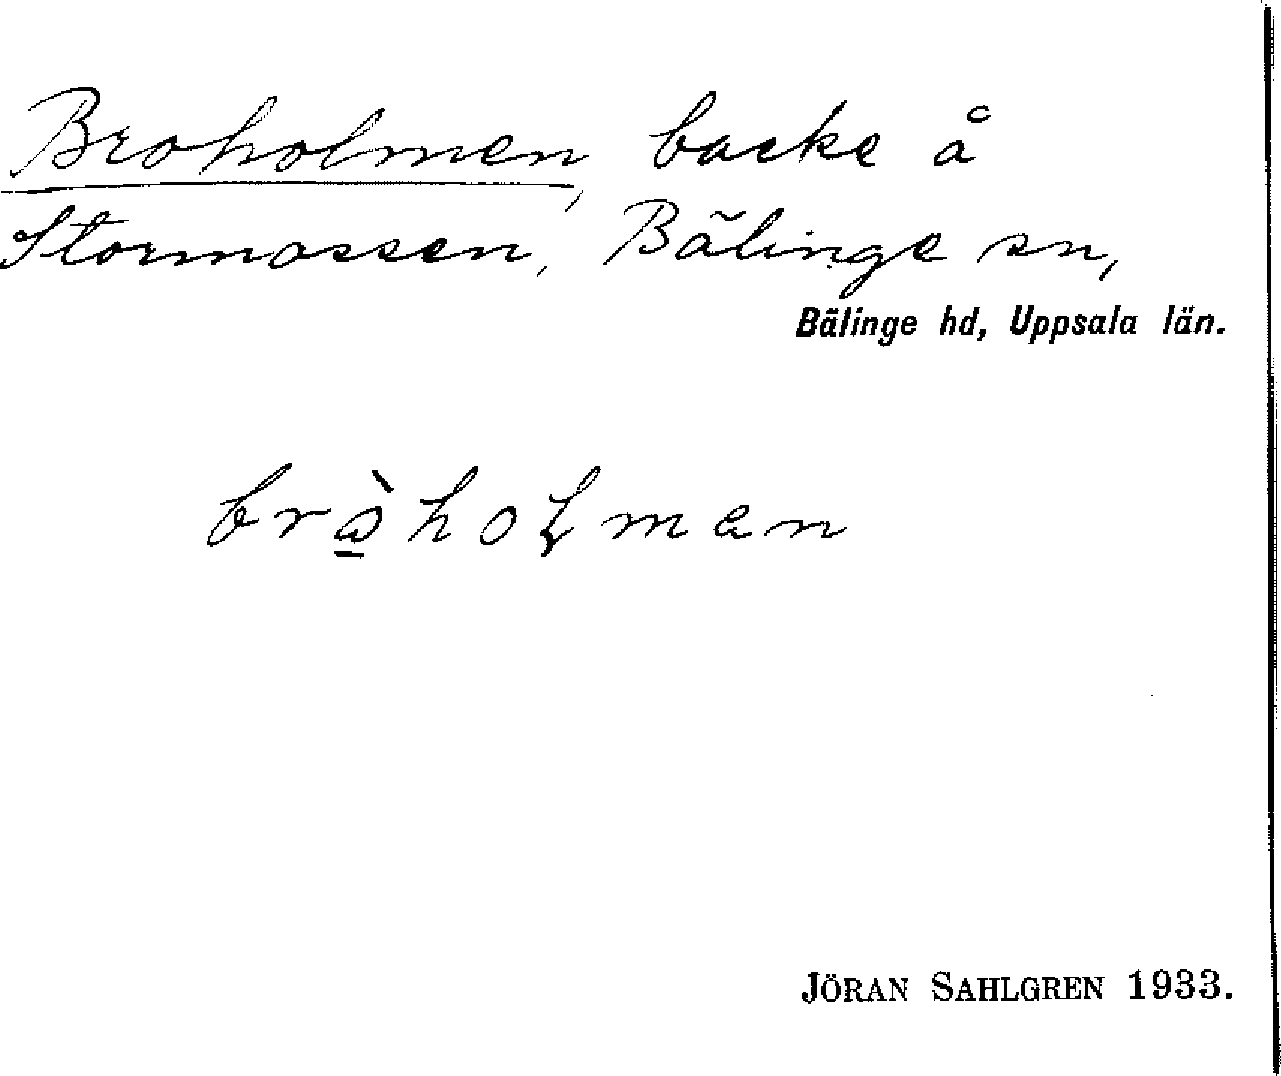 Broholmen, backe å
Stormossen, Bälinge sn,
Bälinge hd, Uppsala län.
JÖRAN SAHLGREN 1933.